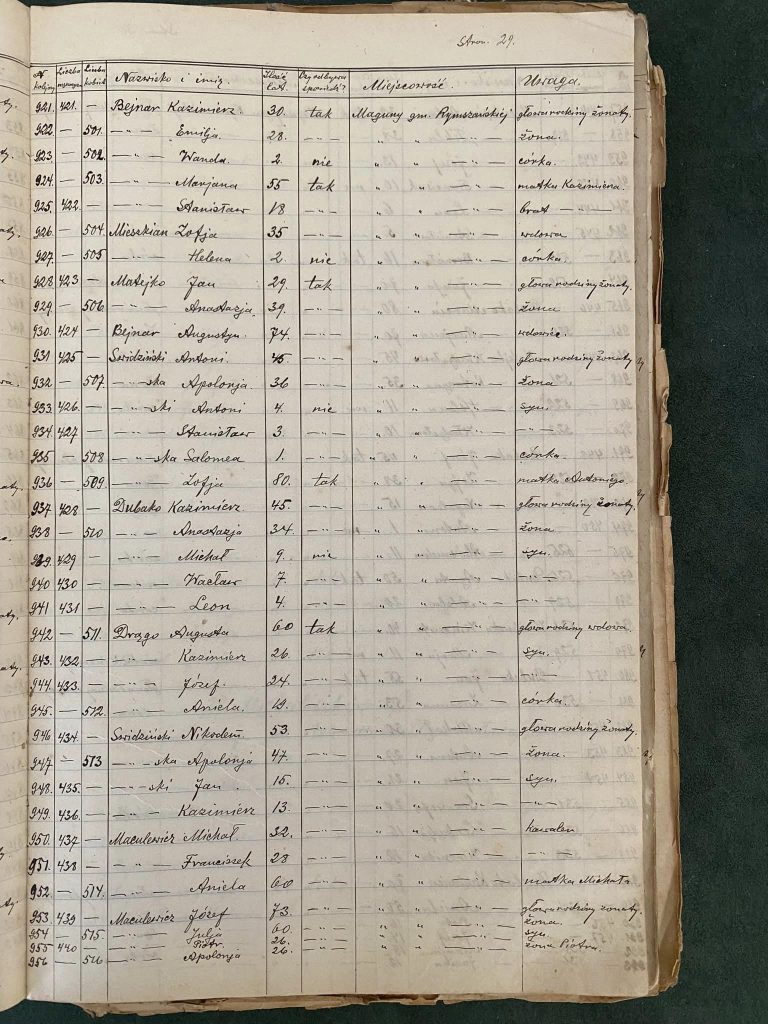 Stron. 29.
№ kolejny Liczba mężczyzn Liczba kobiet Nazwisko i imię. Ilość lat. Czy odbywa spowiedź? Miejscowość. Uwaga.
921. 421. — Bejnar Kazimierz. 30. tak Maguny gm. Rymszańskiej głowa rodziny żonaty.
922 — 501. —"— Emilja. 28. —"— " " —"— żona.
923. — 502. —"— Wanda 2. nie " " —"— córka.
924. — 503. —"— Marjana 55 tak " " —"— matka Kazimierza.
925. 422. — —"— Stanisław 18 —"— " " —"— brat —"—
926. — 504. Mieszkian Zofja 35 —"— " " —"— wdowa
927. — 505 —"— Helena 2. nie " " —"— córka.
928. 423 — Matejko Jan 29. tak " " —"— głowa rodziny żonaty.
929. — 506. —"— Anastazja. 39. —"— " " —"— żona
930. 424 — Bejnar Augustyn 74. —"— " " —"— wdowiec.
931 425 — Swidziński Antoni. 45. —"— " " —"— głowa rodziny żonaty
932 — 507. —"—ska Apolonja. 36 —"— " " —"— żona
933 426. — —"—ski Antoni 4. nie " " —"— syn.
934. 427 — —"— Stanisław 3. —"— " " —"— —"—
935 — 508 —"—ska Salomea 1. —"— " " —"— córka.
936 — 509. —"— Zofja 80. tak " " —"— matka Antoniego.
937 428 — Dubako Kazimierz 45. —"— " " —"— głowa rodziny żonaty.
938 — 510 —"— Anastazja 34. —"— " " —"— żona
939. 429 — —"— Michał 9. nie " " —"— syn.
940 430 — —"— Wacław 7. —"— " " —"— —"—
941 431 — —"— Leon 4. —"— " " —"— —"—
942 — 511. Drągo Augusta 60 tak " " —"— głowa rodziny wdowa.
943. 432. — —"— Kazimierz 26. —"— " " —"— syn.
944. 433. — —"— Józef. 24. —"— " " —"— —"—
945. — 512. —"— Aniela. 19. —"— " " —"— córka.
946. 434. — Swidziński Nikodem. 53. —"— " " —"— głowa rodziny żonaty.
947 — 513 —"—ska Apolonja 47. —"— " " —"— żona.
948. 435. — —"—ski Jan. 15. —"— " " —"— syn.
949. 436. — —"— Kazimierz 13. —"— " " —"— —"—
950. 437 — Maculewicz Michał 32. —"— " " —"— kawaler
951. 438 — —"— Franciszek 28 —"— " " —"— —"—
952. — 514. —"— Aniela 60 —"— " " —"— matka Michała
953. 439 — Maculewicz Józef 73. —"— " " —"— głowa rodziny żonaty.
954 — 515. —"— Julja 60. —"— " " —"— żona.
955 440 — —"— Piotr. 26. —"— " " —"— syn
956 — 516 —"— Apolonja 26. —"— " " —"— żona Piotra.